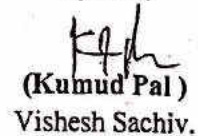 (Kumud Pal)
Vishesh Sachiv.